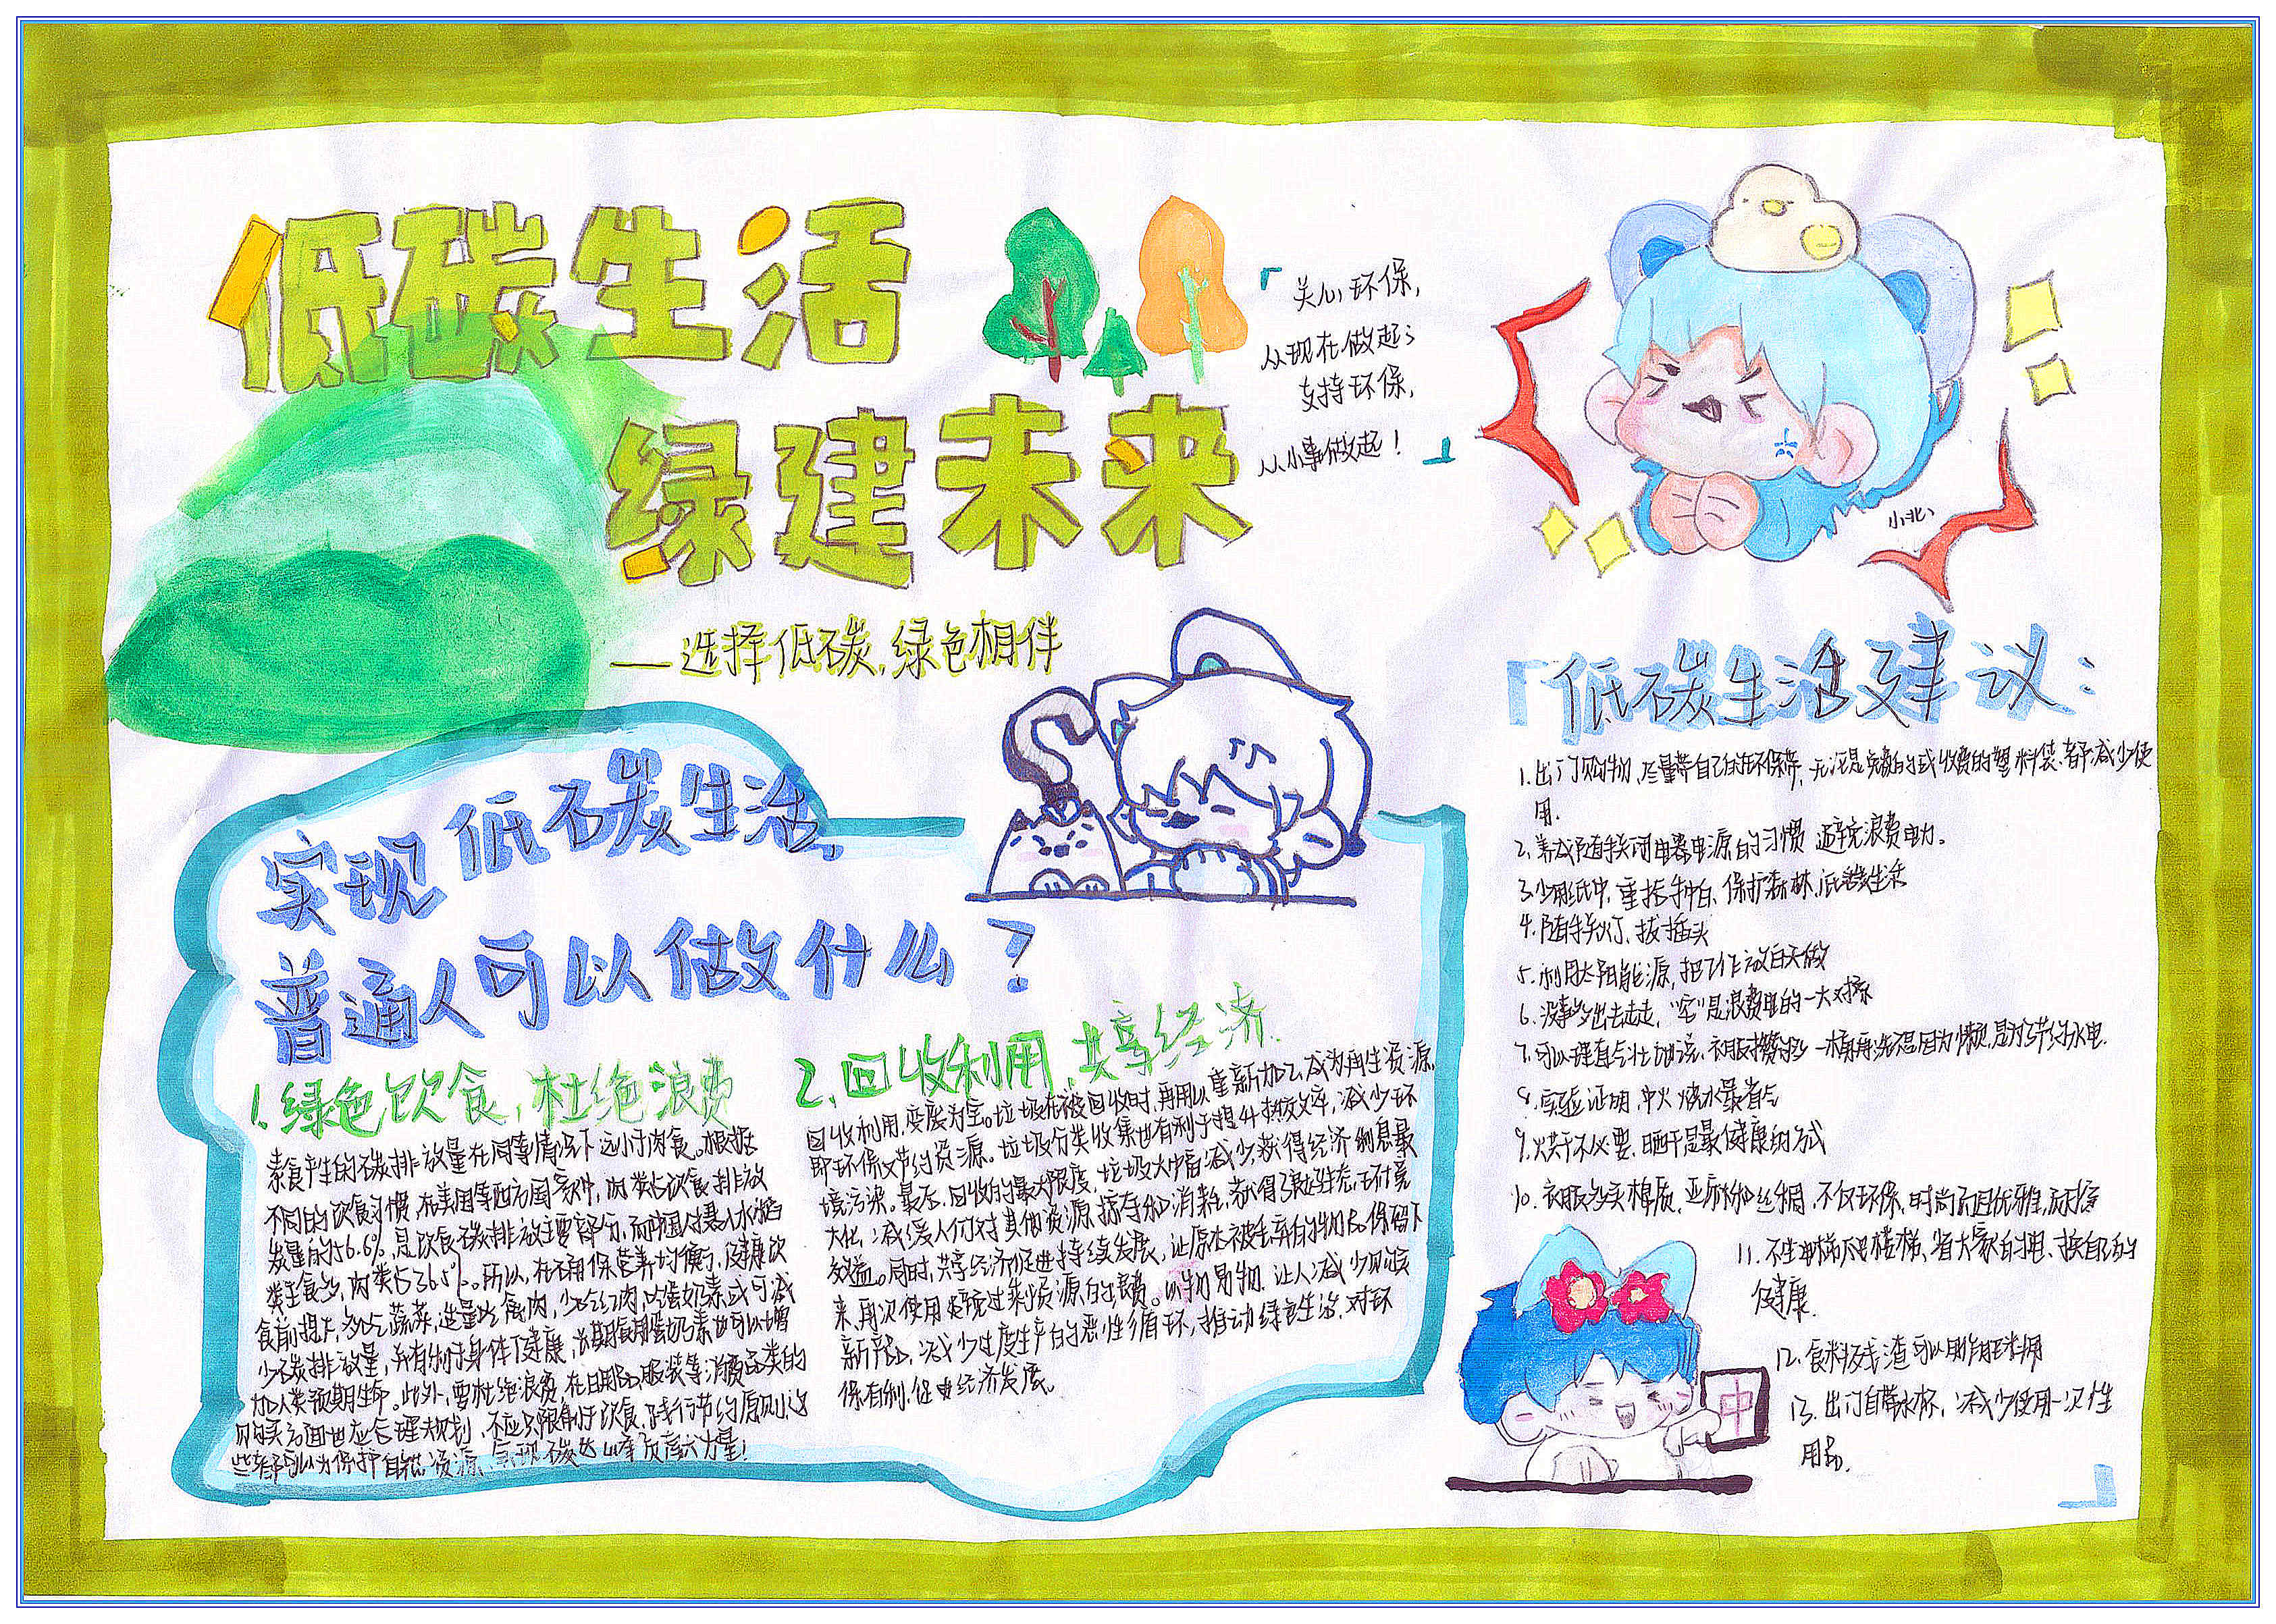 低碳生活
绿建未来
——选择低碳,绿色相伴
「关心环保,
从现在做起;
支持环保,
从小事做起!」
小北
实现低碳生活,
普通人可以做什么?
1.绿色饮食,杜绝浪费
素食产生的碳排放量在同等情况下远小于肉食。根据
不同的饮食习惯,在美国等西方国家中,肉类占饮食排放
发量的56.6%,是饮食碳排放主要部分,而中国对摄入水稻
类主食多,肉类占36.5%。所以,在不用保营养均衡、健康饮
食前提下,多吃蔬菜,适量吃禽肉,少吃红肉,吃蛋奶素或可减
少碳排放量,并有利于身体健康,长期食用蛋奶素也可以增
加人类预期生命。此外,要杜绝浪费,在日用品、服装等消费品类的
购买方面也应合理规划,不应只限制于饮食,践行节约原则,这
些都可以为保护自然资源、实现碳达峰贡献力量!
2.回收利用,共享经济.
回收利用,变废为宝。垃圾在被回收时,再用以重新加工,成为再生资源,
即环保又节约资源。垃圾分类收集也有利于提升热效率,减少环
境污染。最后,回收的最大限度,垃圾大中幅减少,获得经济利息最
大化,减缓人们对其他资源掠夺和消耗,获得了良好生态环境
效益。同时,共享经济促进持续发展,让原本被丢弃的物品保留下
来,再次使用避免过剩资源的浪费。以物易物,让人减少购买
新产品,减少过度生产的恶性循环,推动绿色生活,对环
保有利,促进经济发展。
「低碳生活建议:
1.出门购物,尽量带自己的环保袋,无论是免费的或收费的塑料袋,都减少使
用.
2.养成随手关闭电器电源的习惯 避免浪费电力。
3.少用纸巾,重拾手帕,保护森林,低碳生活
4.随手关灯、拔插头
5.利用太阳能源,把工作放白天做
6.没事多出去走走,“宅”是浪费电的一大对象
7.可以理直气壮地说,衣服攒够一桶再洗不是因为懒,是为了节约水电.
8.实验证明,中火烧水最省气
9.烘干不必要,晒干是最健康的方式
10.衣服多买棉质、亚麻和丝绸,不仅环保,时尚而且优雅,而耐穿
11.不坐电梯爬楼梯,省大家的电,换自己的
健康.
12.食料残渣可以用作肥料用
13.出门自带水杯,减少使用一次性
用品.」
中